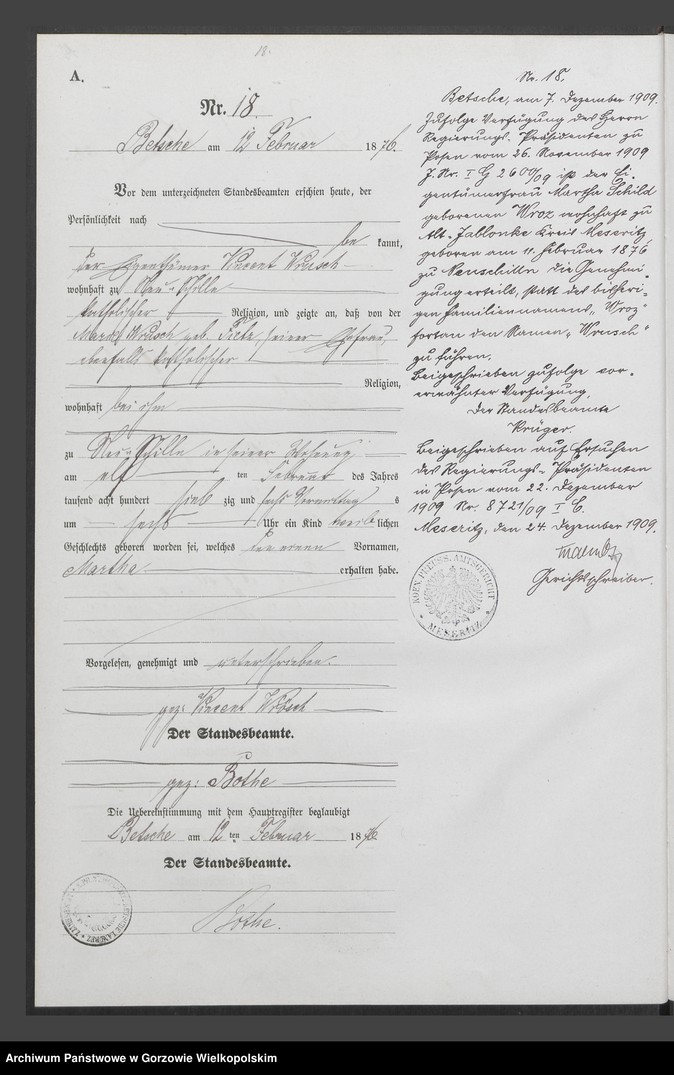 18.
A.
Nr. 18.
Betsche am 12 Februar 1876.
Vor dem unterzeichneten Standesbeamten erschien heute, der
Persönlichkeit nach
be kannt,
der Eigenthümer Vincent Wrusch
wohnhaft zu Neu-Schille
katholischer Religion, und zeigte an, daß von der
Wrusch geb. seiner Ehefrau,
ebenfalls katholischer
Religion,
wohnhaft bei ihm
zu Neu-Schille in seiner Wohnung
am elf ten Februar des Jahres
tausend acht hundert sieb zig und sechs Vormittag s
um sechs Uhr ein Kind weib lichen
Geschlechts geboren worden sei, welches den einen Vornamen,
Martha erhalten habe.
Vorgelesen, genehmigt und unterschrieben.
gez: Vincent Wrosch
Der Standesbeamte.
gez: Bothe
Die Uebereinstimmung mit dem Hauptregister beglaubigt
Betsche am 12 ten Februar 1876
Der Standesbeamte.
Bothe.
Nr. 18.
Betsche, am 7. Dezember 1909.
Zufolge Verfügung des Herrn
Regierungs-Präsidenten zu
Posen vom 26. November 1909
J. Nr. I G 2600/09 ist der Ei-
gentümerfrau Martha Schild
geborenen Wroz wohnhaft zu
Alt-Jablonke Kreis Meseritz
geboren am 11. Februar 1876
zu Neuschille die Genehmi-
gung erteilt, statt des bisheri-
gen Familiennamens "Wroz"
fortan den Namen "Wrusch"
zu führen.
Beigeschrieben zufolge vor-
erwähnter Verfügung.
Der Standesbeamte
Krüger.
Beigeschrieben auf Ersuchen
des Regierungs-Präsidenten
in Posen vom 22. Dezember
1909 Nr. 8721/09 I G.
Meseritz, den 24. Dezember 1909.
Gerichtsschreiber.
KOEN. PREUSS. AMTSGERICHT
* MESERITZ *
Archiwum Państwowe w Gorzowie Wielkopolskim